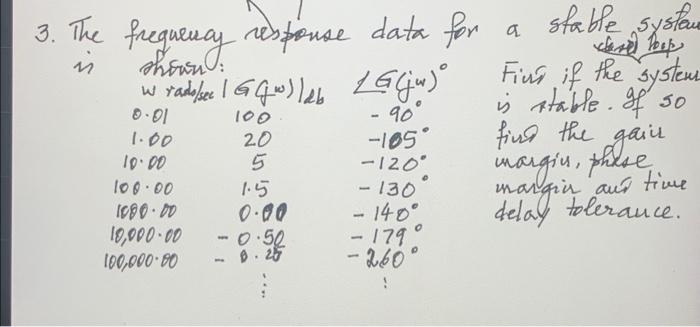 3. The frequency response data for a stable system
is shown:
closed loop
w rads/sec |G(jw)|db ∠G(jw)°
Find if the system
0.01 100 -90°
is stable. If so
1.00 20 -105°
find the gain
10.00 5 -120°
margin, phase
100.00 1.5 -130°
margin and time
1000.00 0.00 -140°
delay tolerance.
10,000.00 -0.50 -179°
100,000.00 -0.25 -260°
⋮ ⋮